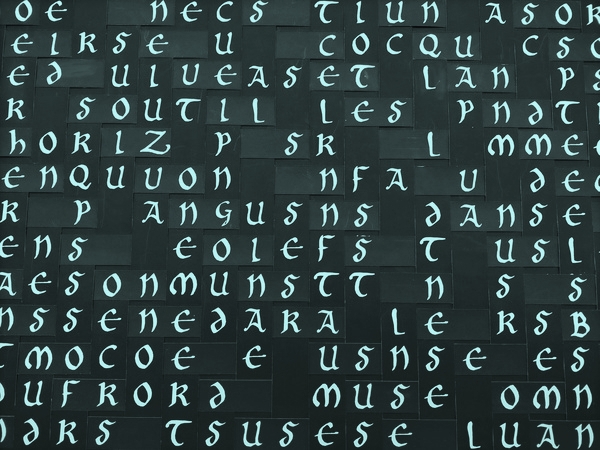 OE NECS TIUN ASOR
EIRSE U COCQU CSO
ED UIUEASET LAN PS
R SOUTIL LES PNDT
HORIZ P SR L MME
ENQUUON NFA U DEC
R P ANGUSNS DANSE
ENS EOLEFS T USL
AESONMUNSTT N S S
NSSENEDARA LE RSB
TMOCOE E USNSE ES
UFRORD MUSE OMN
DRS TSUSESE LUAN